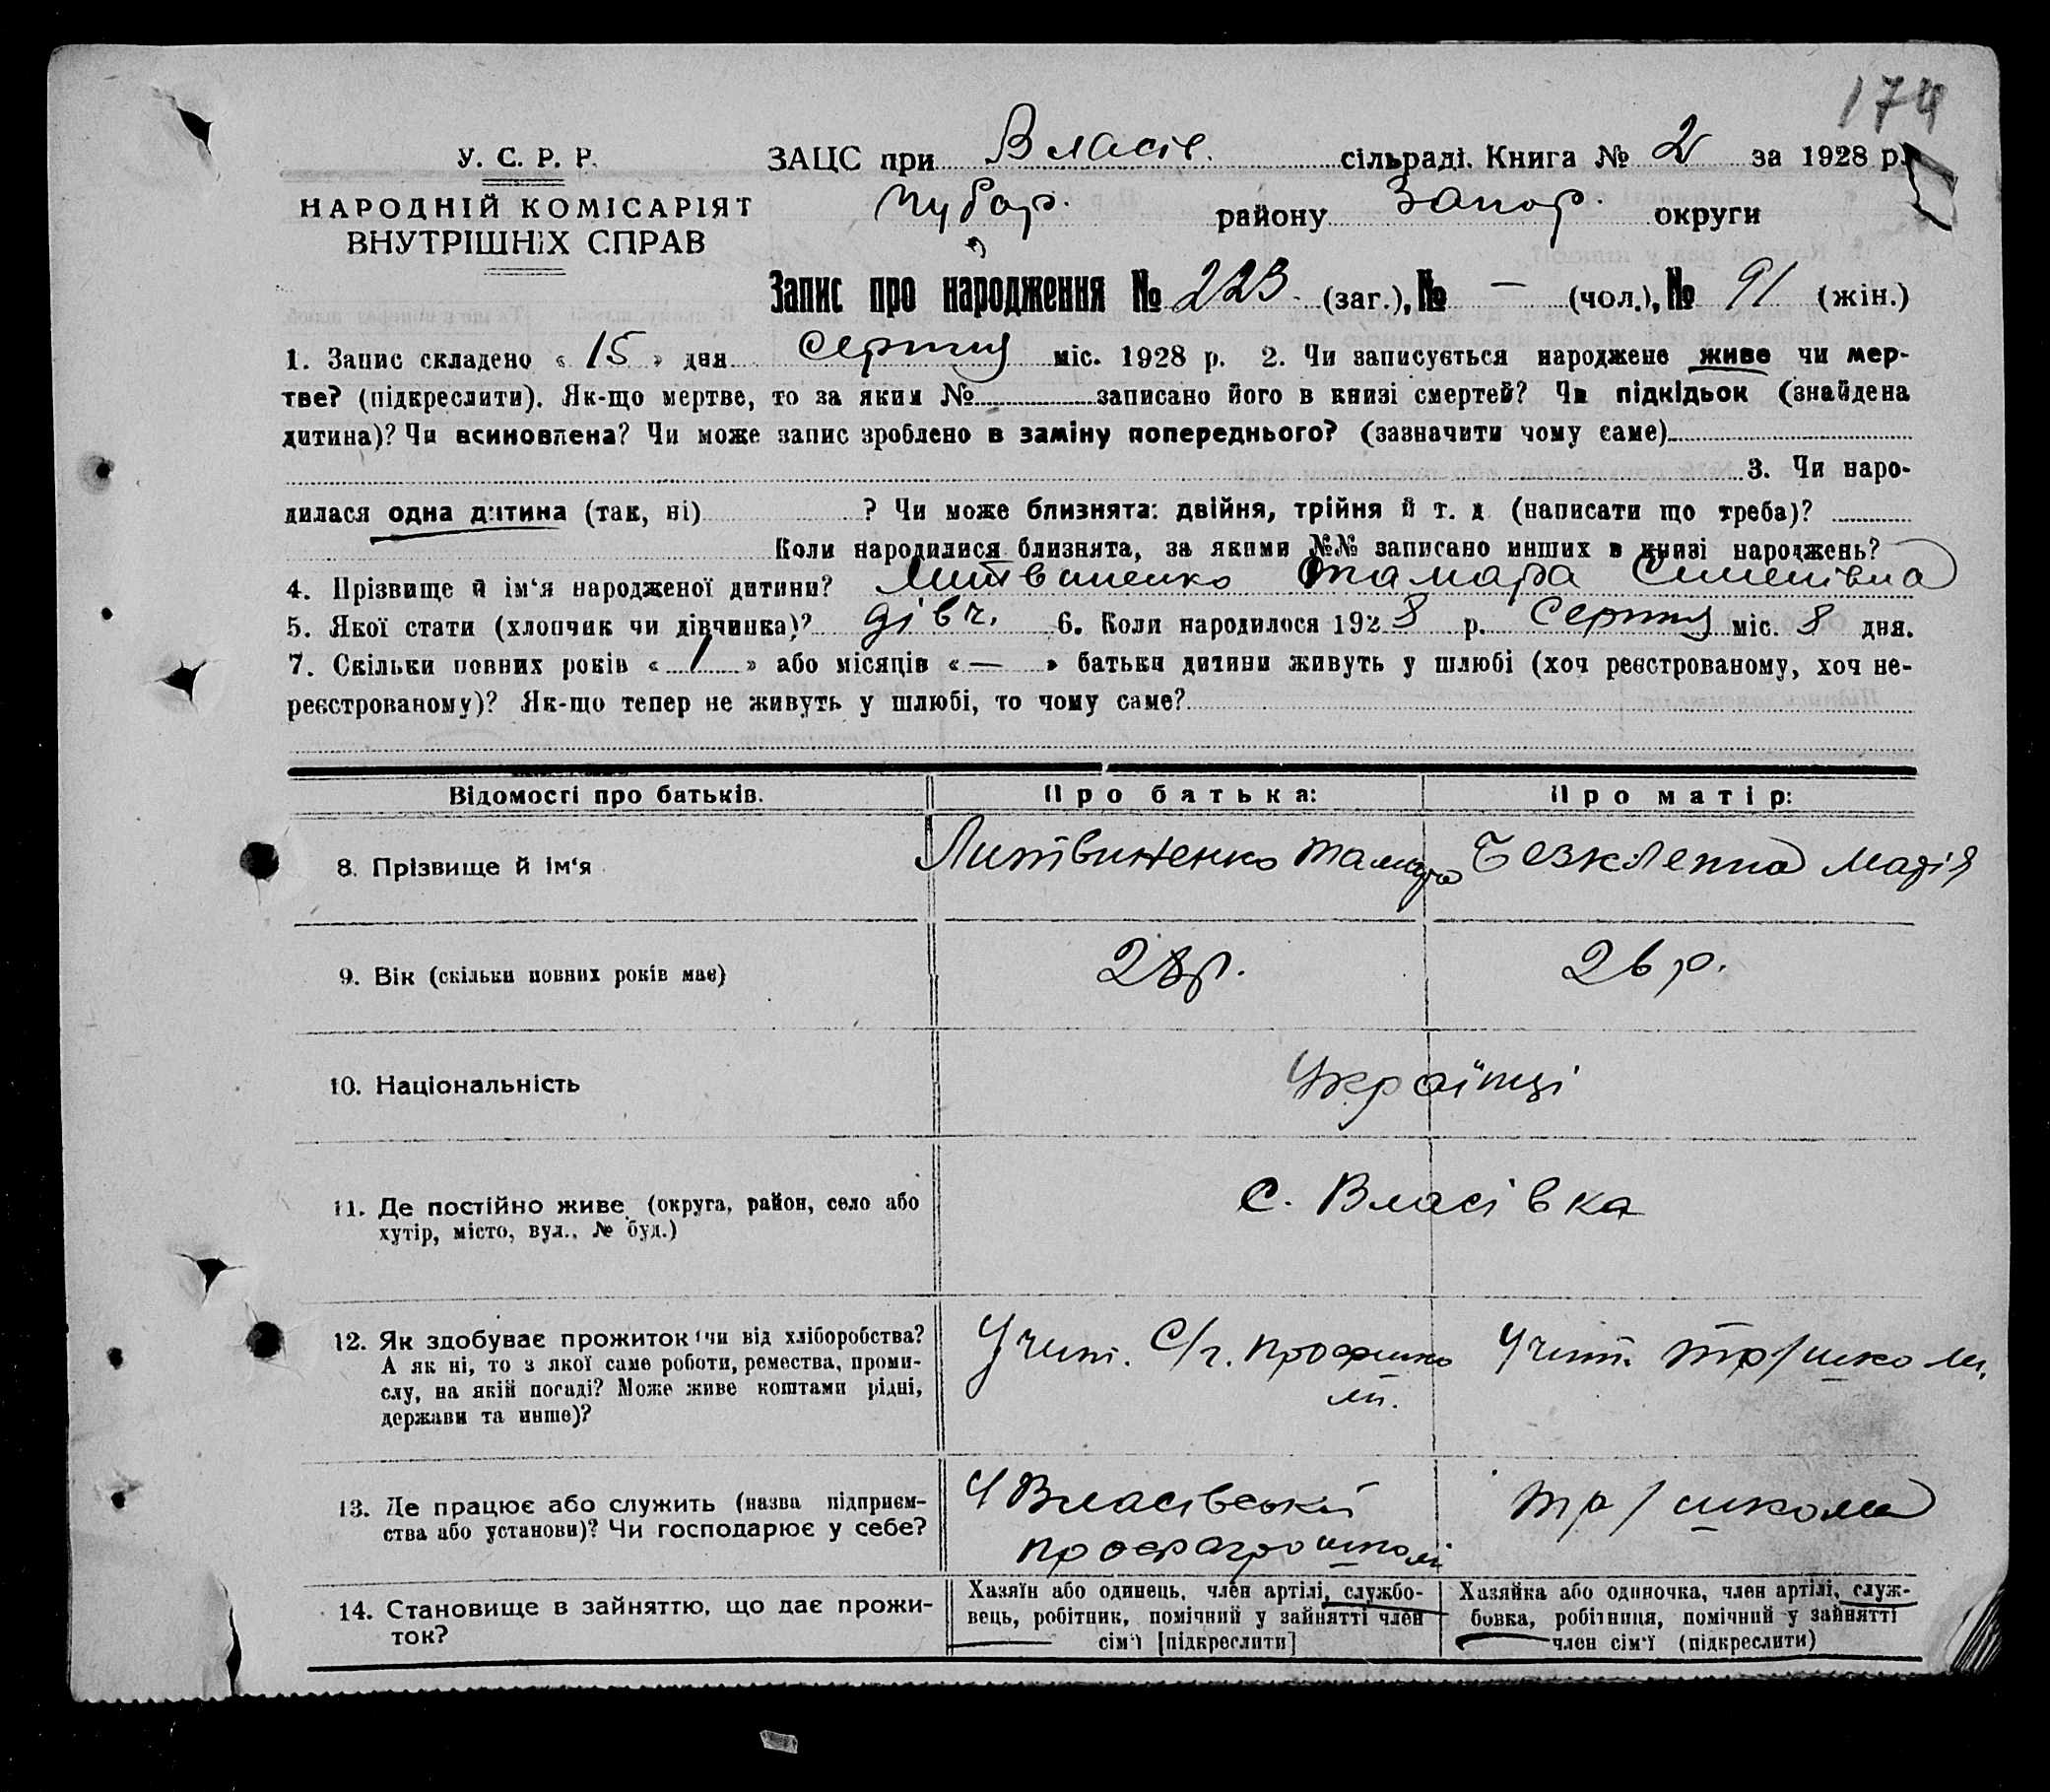 174
У. С. Р. Р. ЗАЦС при Власів. сільраді. Книга № 2 за 1928 р.
НАРОДНІЙ КОМІСАРІЯТ Чубар. району Запор. округи
ВНУТРІШНІХ СПРАВ
Запис про народження № 223. (заг.), № — (чол.), № 91 (жін.)
1. Запис складено « 15 » дня Серпня міс. 1928 р. 2. Чи записується народжене живе чи мер-
тве? (підкреслити). Як-що мертве, то за яким № записано його в книзі смертей? Чи підкідьок (знайдена
дитина)? Чи всиновлена? Чи може запис зроблено в заміну попереднього? (зазначити чому саме)
3. Чи наро-
дилася одна дитина (так, ні) ? Чи може близнята: двійня, трійня й т. д (написати що треба)?
Коли народилися близнята, за якими №№ записано инших в книзі народжень?
4. Прізвище й ім‘я народженої дитини? Литвиненко Тамара Семенівна
5. Якої стати (хлопчик чи дівчинка)? дівч. 6. Коли народилося 1928 р. Серпня міс. 8 дня.
7. Скільки повних років « 1 » або місяців « — » батьки дитини живуть у шлюбі (хоч реєстрованому, хоч не-
реєстрованому)? Як-що тепер не живуть у шлюбі, то чому саме?
Відомості про батьків. Про батька: Про матір:
8. Прізвище й ім‘я Литвиненко Тамара Безклепна Марія
9. Вік (скільки повних років має) 28 р. 26 р.
10. Національність Українці
11. Де постійно живе (округа, район, село або с. Власівка
хутір, місто, вул., № буд.)
12. Як здобуває прожиток (чи від хліборобства? Учит. С/г. профшко Учит. тр/школи,
А як ні, то з якої саме роботи, ремества, проми- ли.
слу, на якій посаді? Може живе коштами рідні,
держави та инше)?
13. Де працює або служить (назва підприєм- У Власівській тр/школа
ства або установи)? Чи господарює у себе? профагрошколі
14. Становище в зайняттю, що дає прожи- Хазяїн або одинець, член артілі, службо- Хазяйка або одиночка, член артілі, служ-
ток? вець, робітник, помічний у зайнятті член бовка, робітниця, помічний у зайнятті
сім‘ї [підкреслити] член сім‘ї (підкреслити)